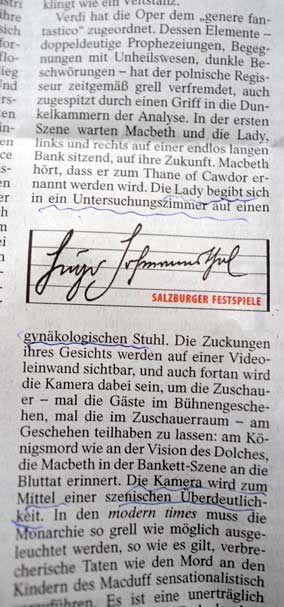 klingt wie ein Veitstanz.
Verdi hat die Oper dem „genere fan-
tastico“ zugeordnet. Dessen Elemente –
doppeldeutige Prophezeiungen, Begeg-
nungen mit Unheilswesen, dunkle Be-
schwörungen – hat der polnische Regis-
seur zeitgemäß grell verfremdet, auch
zugespitzt durch einen Griff in die Dun-
kelkammern der Analyse. In der ersten
Szene warten Macbeth und die Lady,
links und rechts auf einer endlos langen
Bank sitzend, auf ihre Zukunft. Macbeth
hört, dass er zum Thane of Cawdor er-
nannt werden wird. Die Lady begibt sich
in ein Untersuchungszimmer auf einen
Hugo Hofmannsthal
SALZBURGER FESTSPIELE
gynäkologischen Stuhl. Die Zuckungen
ihres Gesichts werden auf einer Video-
leinwand sichtbar, und auch fortan wird
die Kamera dabei sein, um die Zuschau-
er – mal die Gäste im Bühnengesche-
hen, mal die im Zuschauerraum – am
Geschehen teilhaben zu lassen: am Kö-
nigsmord wie an der Vision des Dolches,
die Macbeth in der Bankett-Szene an die
Bluttat erinnert. Die Kamera wird zum
Mittel einer szenischen Überdeutlich-
keit. In den modern times muss die
Monarchie so grell wie möglich ausge-
leuchtet werden, so wie es gilt, verbre-
cherische Taten wie den Mord an den
Kindern des Macduff sensationalistisch
Es ist eine unerträglich